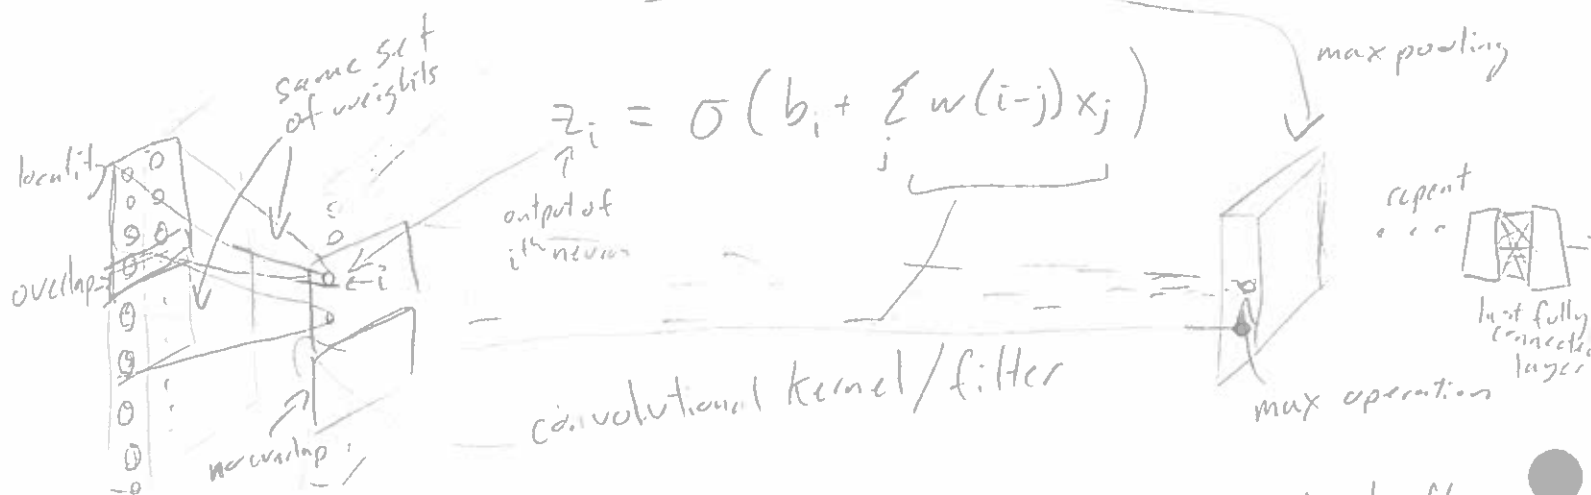 same set
of weights
locality
overlap
no overlap
z_i = σ(b_i + Σ_j w(i-j)x_j)
output of
i^th neuron
←i
convolutional kernel/filter
max pooling
max operation
repeat
...
last fully
connected
layer